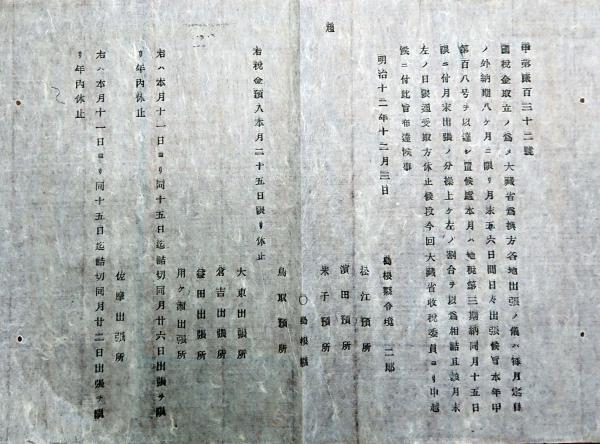 甲第百三十二號
國税金取立ノ爲メ大藏省爲換方各地出張ノ儀ハ毎月定日
ノ外納期八ケ月ニ限リ月末五六日間日々出張候旨本年甲
第百八号ヲ以達シ置候處本月ハ地税第三期納同月十五日
限ニ付月末出張ノ分繰上ケ左ノ割合ヲ以爲相詰且該月末
左ノ日限通受取方休止候段今回大藏省收税委員ヨリ申越
候ニ付此旨布達候事
明治十二年十二月三日
島根縣令境二郎
松江預所
濱田預所
米子預所
〇島根縣
鳥取預所
右税金預入本月二十五日限リ休止
大東出張所
倉吉出張所
益田出張所
用ケ瀬出張所
右ハ本月十一日ヨリ同十五日迄詰切同月廿六日出張ヲ限
リ年内休止
佐摩出張所
右ハ本月十一日ヨリ同十五日迄詰切同月廿二日出張ヲ限
リ年内休止